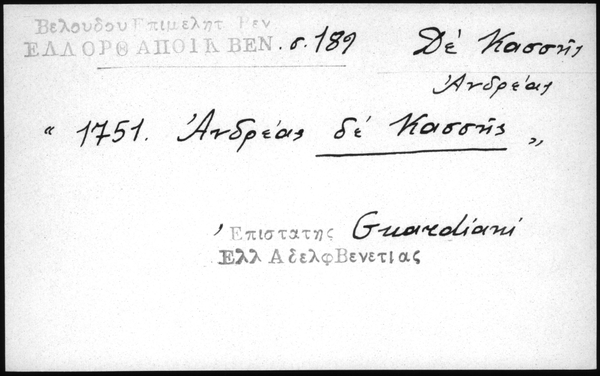 Βελουδου Επιμελητ Βεν
ΕΛΛΟΡΘ ΑΠΟΙΚ ΒΕΝ. σ. 189
Δέ Κασσῆς
Ἀνδρέας
“ 1751. Ἀνδρέας δέ Κασσῆς „
Ἐπιστατης Guardiani
Ελλ ΑδελφΒενετιας